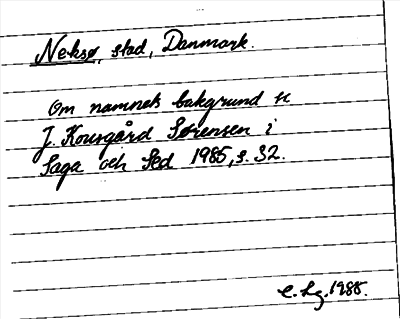 Neksø, stad, Danmark.
Om namnets bakgrund se
J. Kousgård Sørensen i
Saga och Sed 1985, s. 32.
E. Lg. 1988.